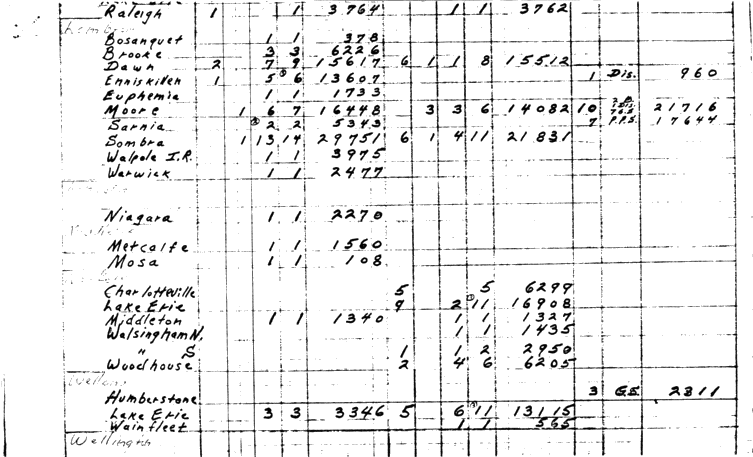 Raleigh 1 1 3764 1 1 3762
Lambton
Bosanquet 1 1 378
Brooke 3 3 6226
Dawn 2 7 9 15617 6 1 1 8 15512
Enniskillen 1 5 6 13607 1 Dis. 960
Euphemia 1 1 1733
Moore 1 6 7 16448 3 3 6 14082 10 21716
Sarnia 2 2 5343 7 P.P.S. 17644
Sombra 1 13 14 29751 6 1 4 11 21831
Walpole I.R. 1 1 3975
Warwick 1 1 2477
Niagara 1 1 2270
Metcalfe 1 1 1560
Mosa 1 1 108
Charlotteville 5 5 6299
Lake Erie 9 2 11 16908
Middleton 1 1 1340 1 1 1327
Walsingham N. 1 1 1435
" S 1 1 2 2950
Woodhouse 2 4 6 6205
Welland
Humberstone 3 G.S. 2811
Lake Erie 3 3 3346 5 6 11 13115
Wainfleet 1 1 565
Wellington